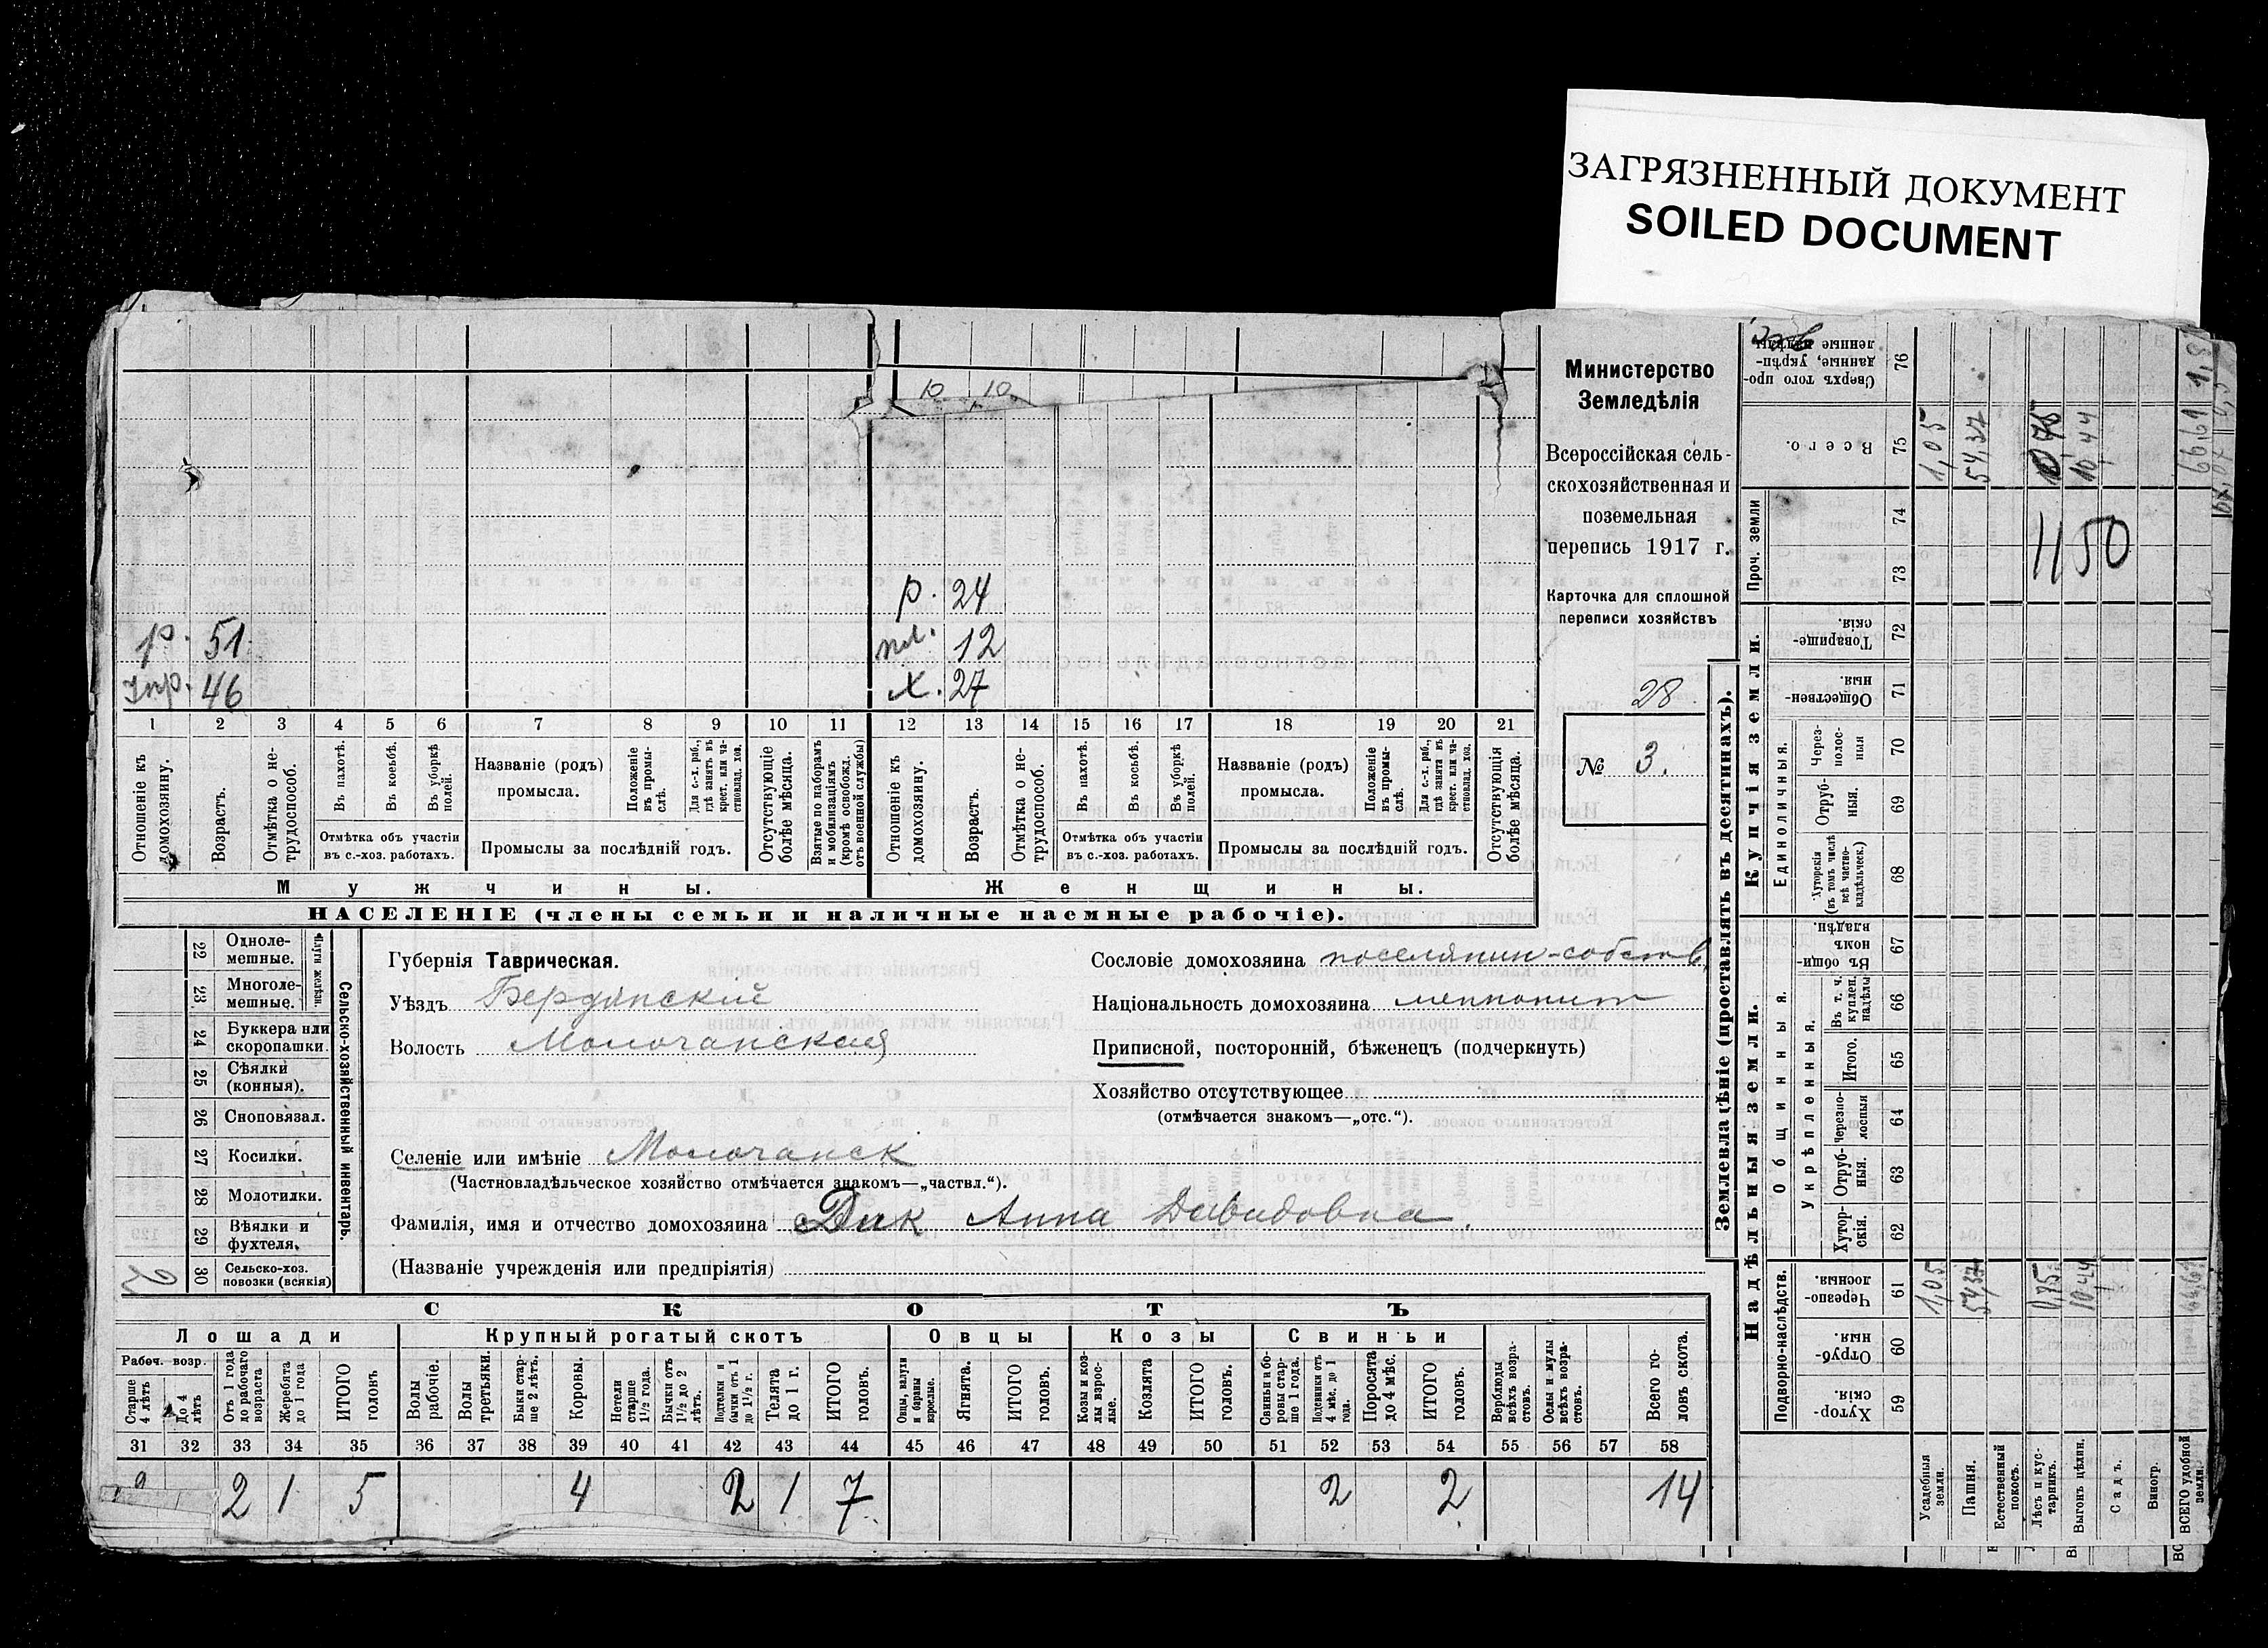 ЗАГРЯЗНЕННЫЙ ДОКУМЕНТ
SOILED DOCUMENT
10 10
р. 51.
пр. 46
р. 24
12
х. 27
1 2 3 4 5 6 7 8 9 10 11 12 13 14 15 16 17 18 19 20 21
Отношеніе къ домохозяину.
Возрастъ.
Отмѣтка о не-трудоспособ.
Въ пахотѣ.
Въ косьбѣ.
Въ уборкѣ полей.
Отмѣтка объ участіи
въ с.-хоз. работахъ.
Названіе (родъ)
промысла.
Положеніе въ промы-слѣ.
Для с.-х. раб., гдѣ занятъ въ крест. или ча-стновлад. хоз.
Промыслы за послѣдній годъ.
Отсутствующіе болѣе мѣсяца.
Взятые по наборамъ и мобилизаціямъ (кромѣ освобожд. отъ военной службы)
Отношеніе къ домохозяину.
Возрастъ.
Отмѣтка о не-трудоспособ.
Въ пахотѣ.
Въ косьбѣ.
Въ уборкѣ полей.
Отмѣтка объ участіи
въ с.-хоз. работахъ.
Названіе (родъ)
промысла.
Положеніе въ промы-слѣ.
Для с.-х. раб., гдѣ занята въ крест. или ча-стновлад. хоз.
Промыслы за послѣдній годъ.
Отсутствующія болѣе мѣсяца.
Мужчины.
Женщины.
НАСЕЛЕНІЕ (члены семьи и наличные наемные рабочіе).
Министерство
Земледѣлія
Всероссійская сель-
скохозяйственная и
поземельная
перепись 1917 г.
Карточка для сплошной
переписи хозяйствъ
28
№ 3.
Сельско-хозяйственный инвентарь.
Плуги желѣзн.
22 Одноле-
мешные.
23 Многоле-
мешные.
24 Буккера или
скоропашки.
25 Сѣялки
(конныя).
26 Сноповязал.
27 Косилки.
28 Молотилки.
29 Вѣялки и
фухтеля.
30 Сельско-хоз.
повозки (всякія)
2
Губернія Таврическая.
Уѣздъ Бердянскій
Волость Молочанская
Сословіе домохозяина поселянин-собств.
Національность домохозяина меннонит
Приписной, посторонній, бѣженецъ (подчеркнуть)
Хозяйство отсутствующее
(отмѣчается знакомъ—„отс.“).
Селеніе или имѣніе Молочанск
(Частновладѣльческое хозяйство отмѣчается знакомъ—„частвл.“).
Фамилія, имя и отчество домохозяина Дик Анна Давидовна.
(Названіе учрежденія или предпріятія)
СКОТЪ
Лошади
Крупный рогатый скотъ
Овцы
Козы
Свиньи
Рабоч. возр.
Старше 4 лѣтъ
До 4 лѣтъ
Отъ 1 года до рабочаго возраста
Жеребята до 1 года
ИТОГО головъ.
Волы рабочіе.
Волы третьяки.
Быки стар-ше 2 лѣтъ.
Коровы.
Нетели старше 1½ года.
Бычки отъ 1½ до 2 лѣтъ.
Подтелки и бычки отъ 1 до 1½ г.
Телята до 1 г.
ИТОГО головъ.
Овцы, валухи и бараны взрослые.
Ягнята.
ИТОГО головъ.
Козы и коз-лы взрос-лые.
Козлята
ИТОГО головъ.
Свиньи и бо-ровы стар-ше 1 года.
Подсвинки отъ 4 мѣс. до 1 года.
Поросята до 4 мѣс.
ИТОГО головъ.
Верблюды всѣхъ возра-стовъ.
Ослы и мулы всѣхъ возра-стовъ.
Всего го-ловъ скота.
31 32 33 34 35 36 37 38 39 40 41 42 43 44 45 46 47 48 49 50 51 52 53 54 55 56 57 58
2 1 5 4 2 1 7 2 2 14
Землевладѣніе (проставлять въ десятинахъ).
Надѣльныя земли.
Купчія земли.
Проч. земли
Подворно-наслѣдств.
Общинныя.
Укрѣпленныя.
Единоличныя.
Хутор-скія. 59
Отруб-ныя 60
Черезпо-лосныя. 61
Хутор-скія. 62
Отруб-ныя. 63
Черезпо-лосныя 64
Итого. 65
Въ т. ч. куплен. надѣлы 66
Въ общин-номъ владѣн. 67
Хуторскія (въ томъ числѣ всѣ частно-владѣльческ.) 68
Отруб-ныя. 69
Через-полос-ныя 70
Обществен-ныя. 71
Товарище-скія. 72
73
74
Всего. 75
Сверхъ того про-данные, укрѣп-ленные надѣлы 76
Усадебныя земли.
Пашня.
Естественный покосъ.
Лѣсъ и кус-тарникъ.
Выгонъ цѣлин.
Садъ.
Виногр.
ВСЕГО удобной земли.
1,05 54,37 0,75 10,44 66,61
1,05 54,37 0,75 10,44 66,61
1150